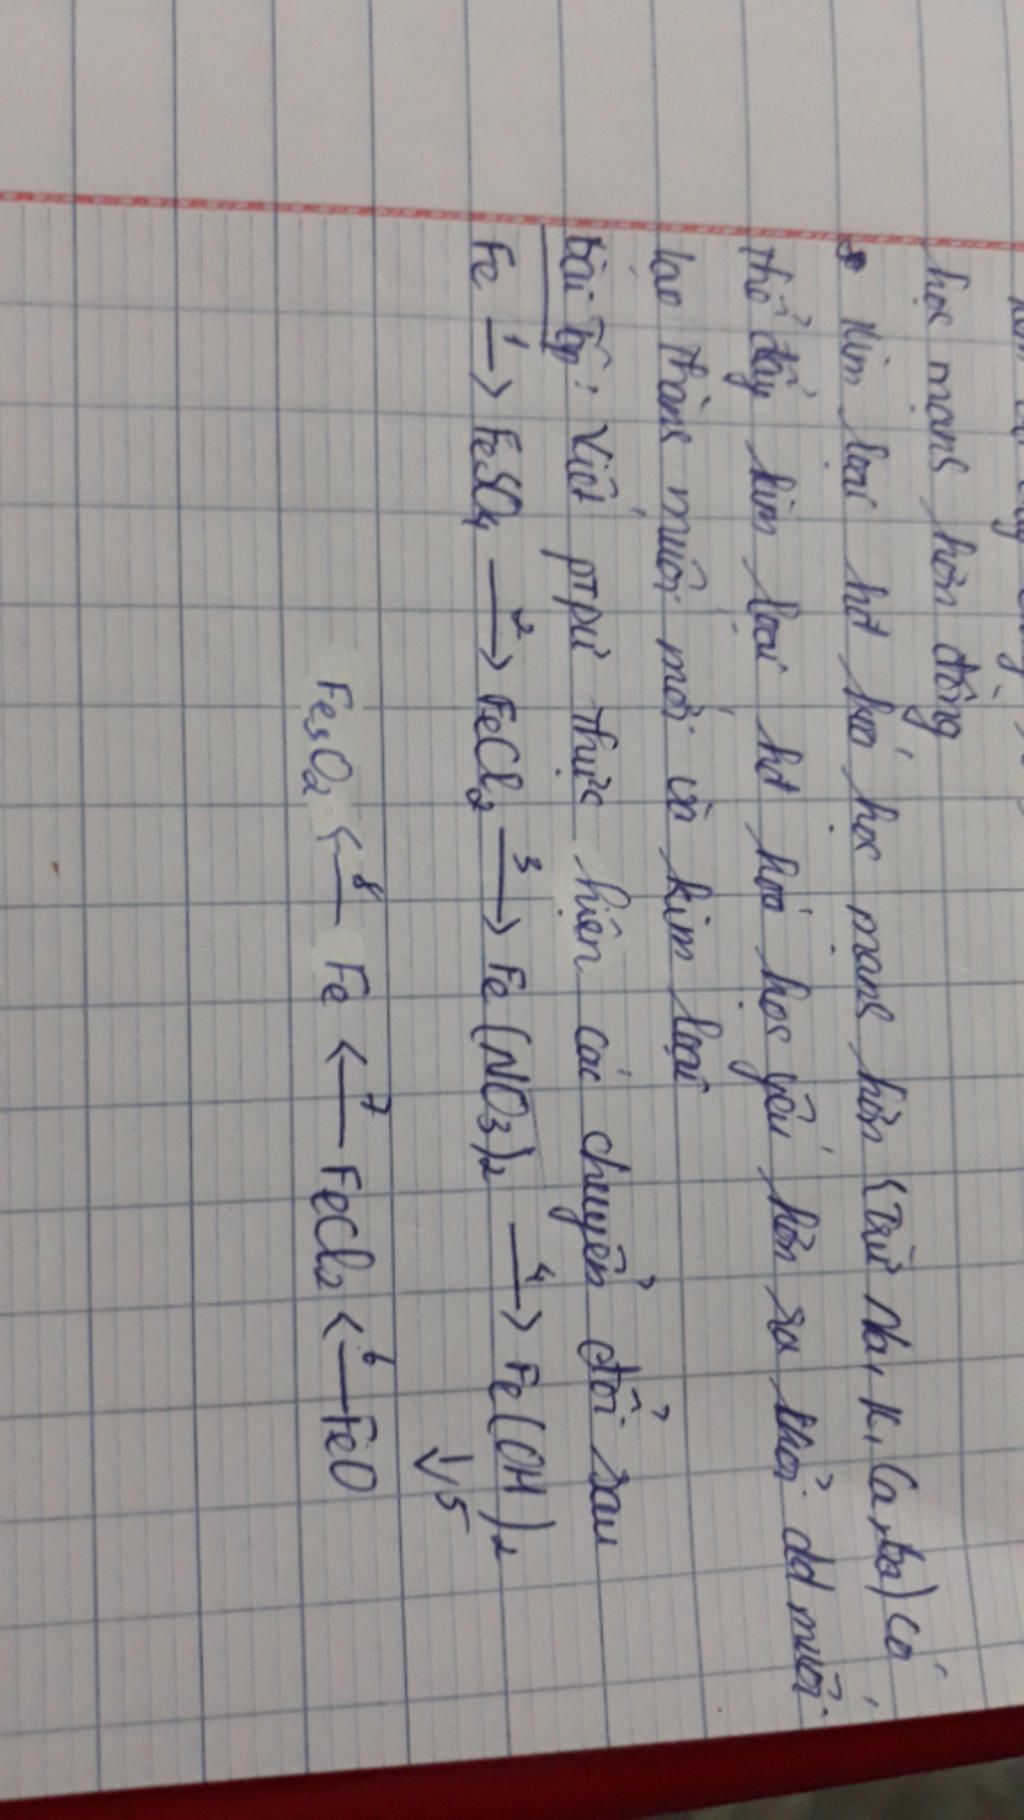 học mạnh hơn đồng
Kim loại hđ hoá học mạnh hơn (Trừ Na, K, Ca, Ba) có
thể đẩy kim loại hđ hoá học yếu hơn ra khỏi dd muối
tạo thành muối mới và kim loại
bài tập: Viết ptpứ thực hiện các chuyển đổi sau
Fe 1→ FeSO4 2→ FeCl2 3→ Fe(NO3)2 4→ Fe(OH)2
↓5
Fe3O4 ←8 Fe ←7 FeCl2 ←6 FeO